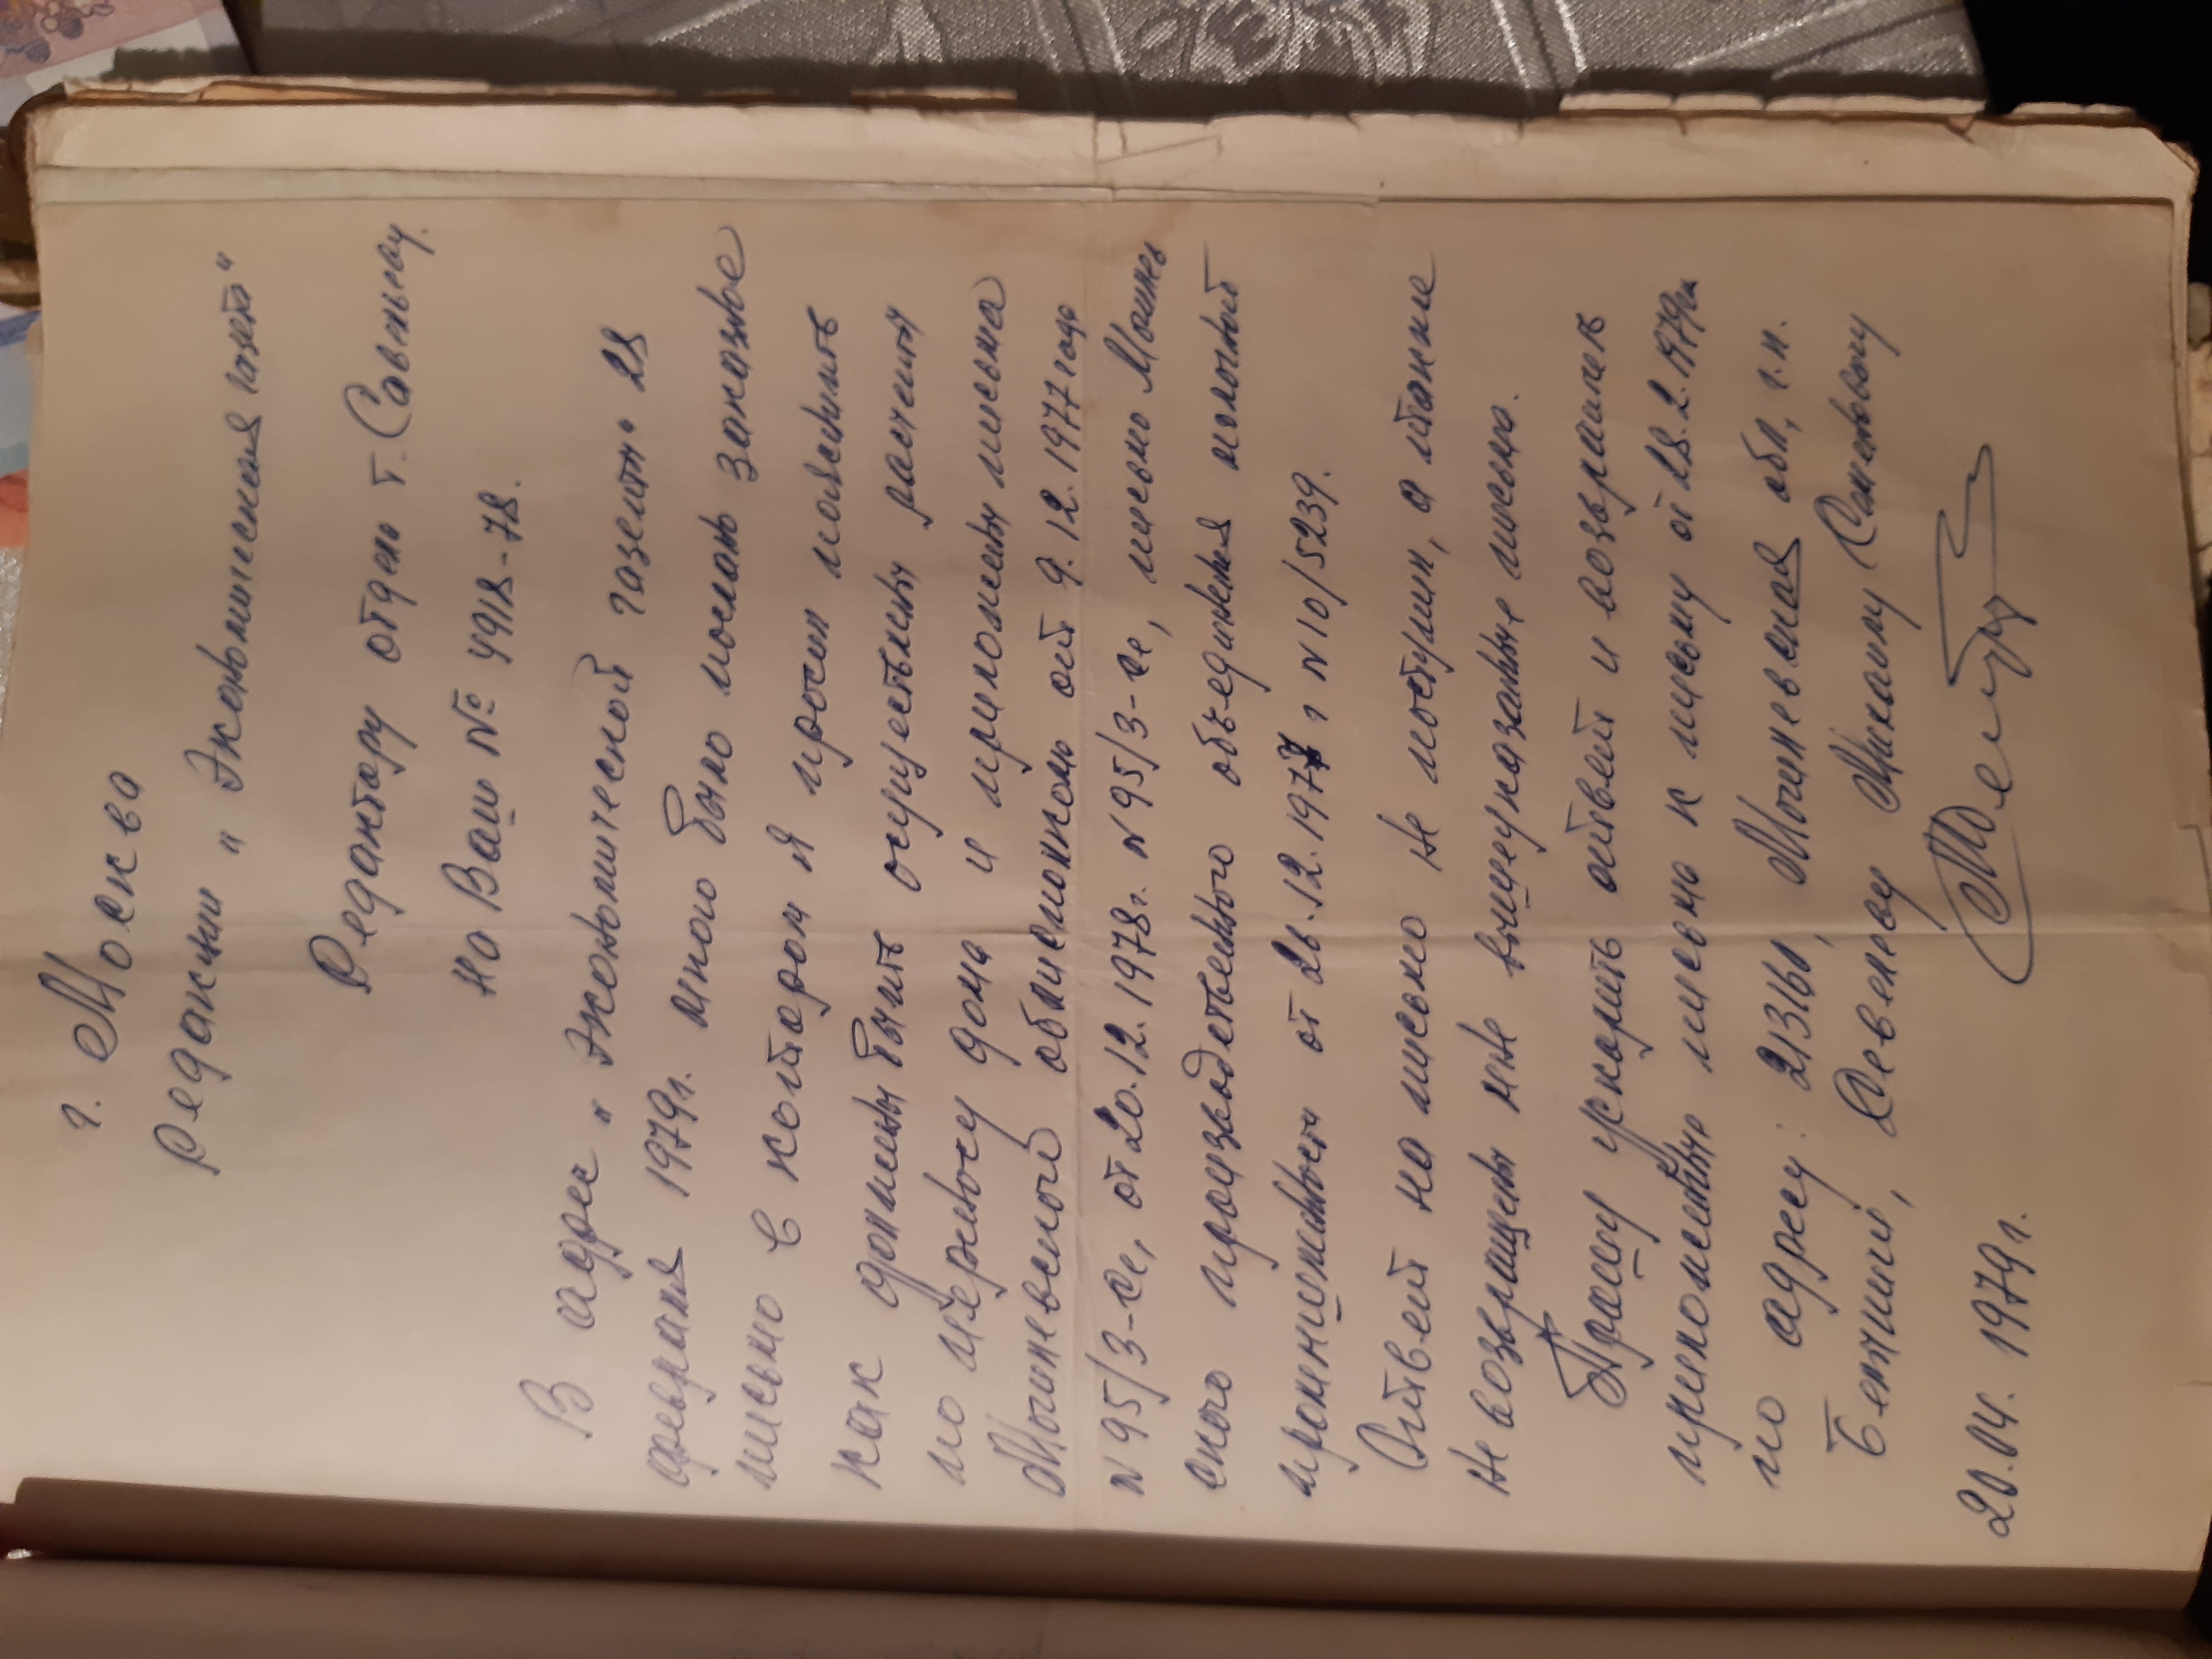 г. Москва
Редакции "Экономическая газета"
Редактору отдела т. Савельеву.
На Ваш № 4918-78.
В адрес "Экономической газеты" 28
февраля 1979г. мною было послано заказное
письмо в котором я просил пояснить
как должны быть осуществлены расчеты
по переносу дома и приложены письма
Могилевского облисполкома от 9.12.1977 года
N 95/3-се, от 20.12.1978г. N 95/3-се, письмо Могилев
ского производственного объединения молочной
промышленности от 26.12.1977 г N 10/5239.
Ответ на письмо не поступил, а также
не возвращены мне вышеуказанные письма.
Прошу ускорить ответ и возвратить
приложенные письма к письму от 28.2.1979г
по адресу: 213160, Могилевская обл, г.п.
Белыничи, Михаилу Семеновичу
20.04. 1979г.